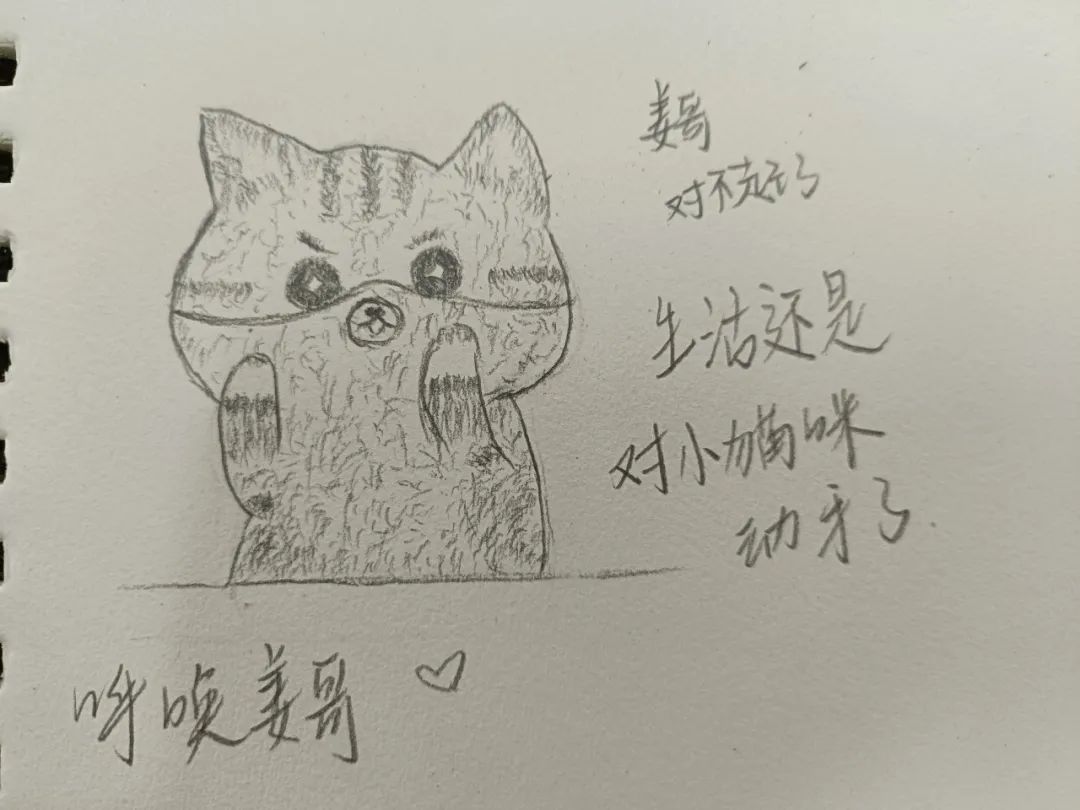 姜哥
对不起了
生活还是
对小猫咪
动手了.
呼唤姜哥